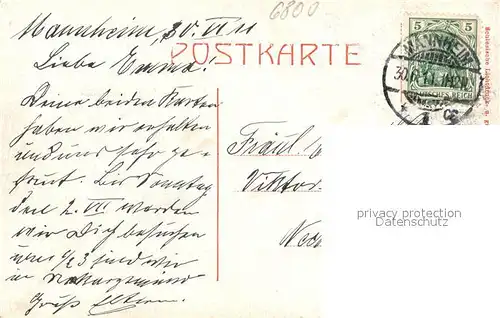 6800
Mannheim, 30. VI 11
POSTKARTE
Liebe Emma!
Deine beiden Karten
haben wir erhalten
und uns sehr ge-
freut. Bis Sonntag
den 2. VII werden
wir Dich besuchen
um ½3 sind wir
in Neckargemünd
Gruß Eltern.
Fräul
Viktor
Nec
5 5
MANNHEIM
30.6.11
DEUTSCHES REICH
privacy protection
Datenschutz